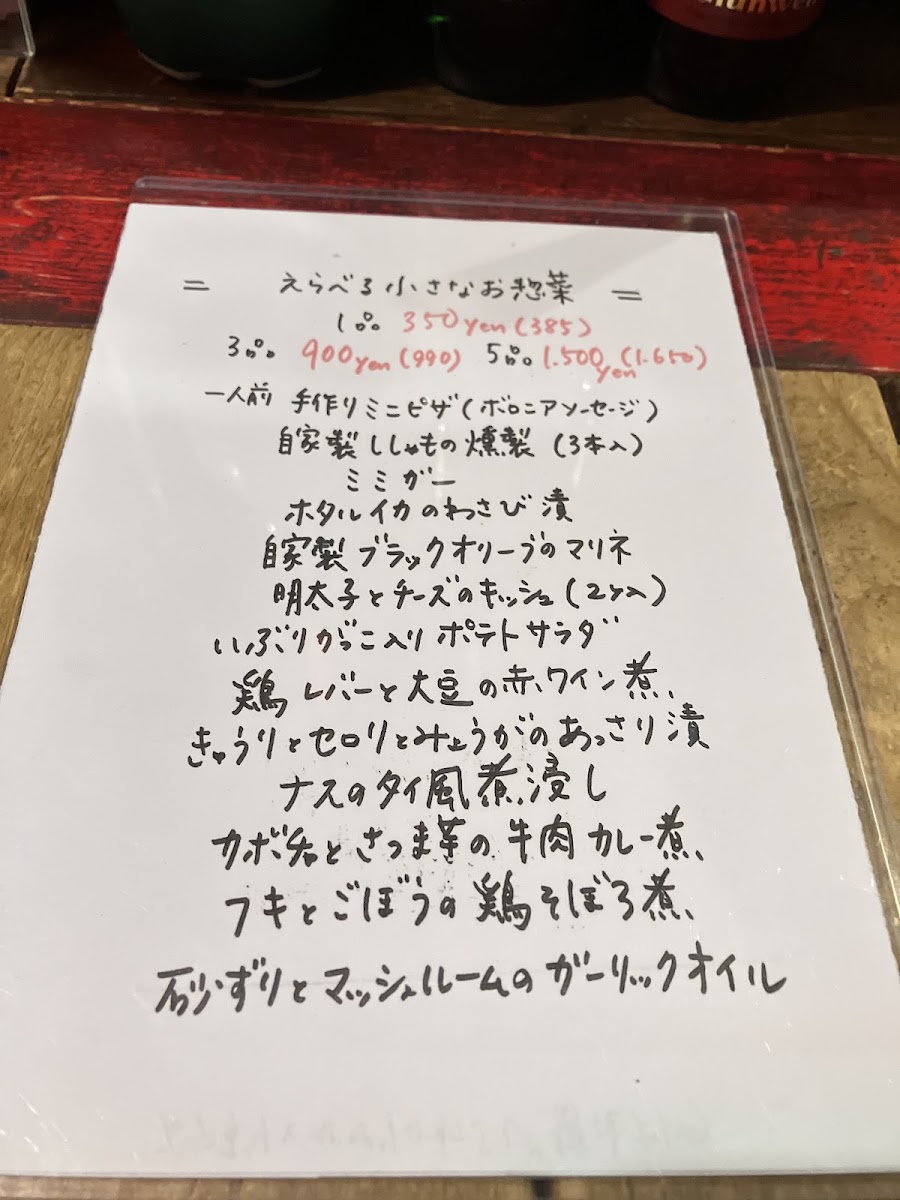 = えらべる小さなお惣菜 =
1品 350yen(385)
3品 900yen(990) 5品 1.500yen(1.650)
一人前 手作りミニピザ(ボロニアソーセージ)
自家製ししゃもの燻製(3本入)
ミミガー
ホタルイカのわさび漬
自家製ブラックオリーブのマリネ
明太子とチーズのキッシュ(2ケ入)
いぶりがっこ入りポテトサラダ
鶏レバーと大豆の赤ワイン煮
きゅうりとセロリとみょうがのあっさり漬
ナスのタイ風煮浸し
カボチャとさつま芋の牛肉カレー煮
フキとごぼうの鶏そぼろ煮
砂ずりとマッシュルームのガーリックオイル